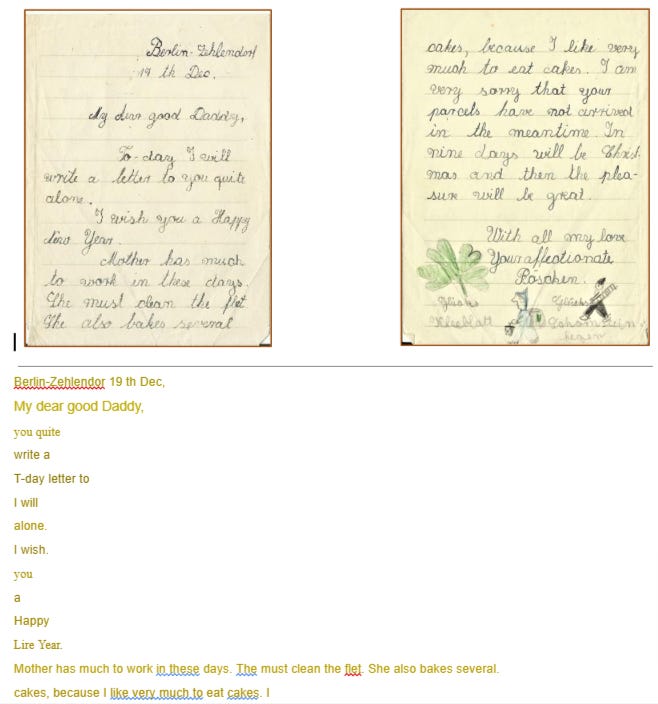 Berlin-Zehlendorf
19 th Dec.
My dear good Daddy,
To-day I will
write a letter to you quite
alone.
I wish you a Happy
New Year.
Mother has much
to work in these days.
She must clean the flat
She also bakes several
cakes, because I like very
much to eat cakes. I am
very sorry that your
parcels have not arrived
in the meantime. In
nine days will be Christ-
mas and then the plea-
sure will be great.
With all my love
Your affectionate
Röschen.
Glücks
Kleeblatt
Glücks
Schornstein
Berlin-Zehlendor 19 th Dec,
My dear good Daddy,
you quite
write a
T-day letter to
I will
alone.
I wish.
you
a
Happy
Lire Year.
Mother has much to work in these days. The must clean the flet. She also bakes several.
cakes, because I like very much to eat cakes. I